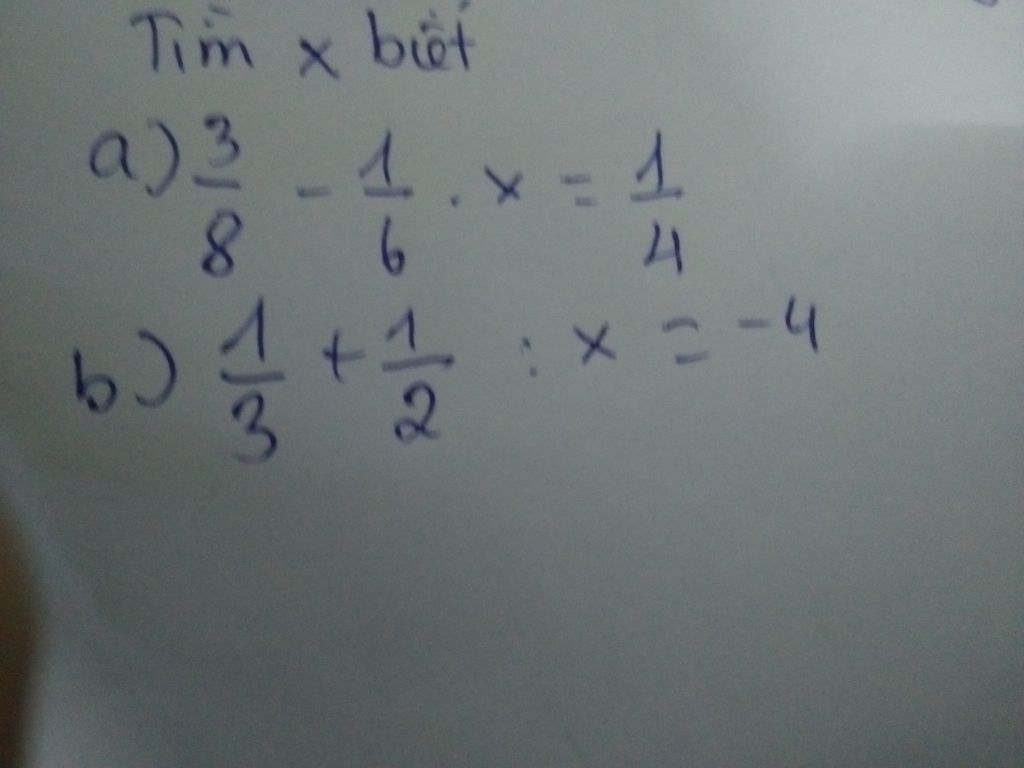 Tìm x biết
a) 3/8 - 1/6 . x = 1/4
b) 1/3 + 1/2 : x = -4